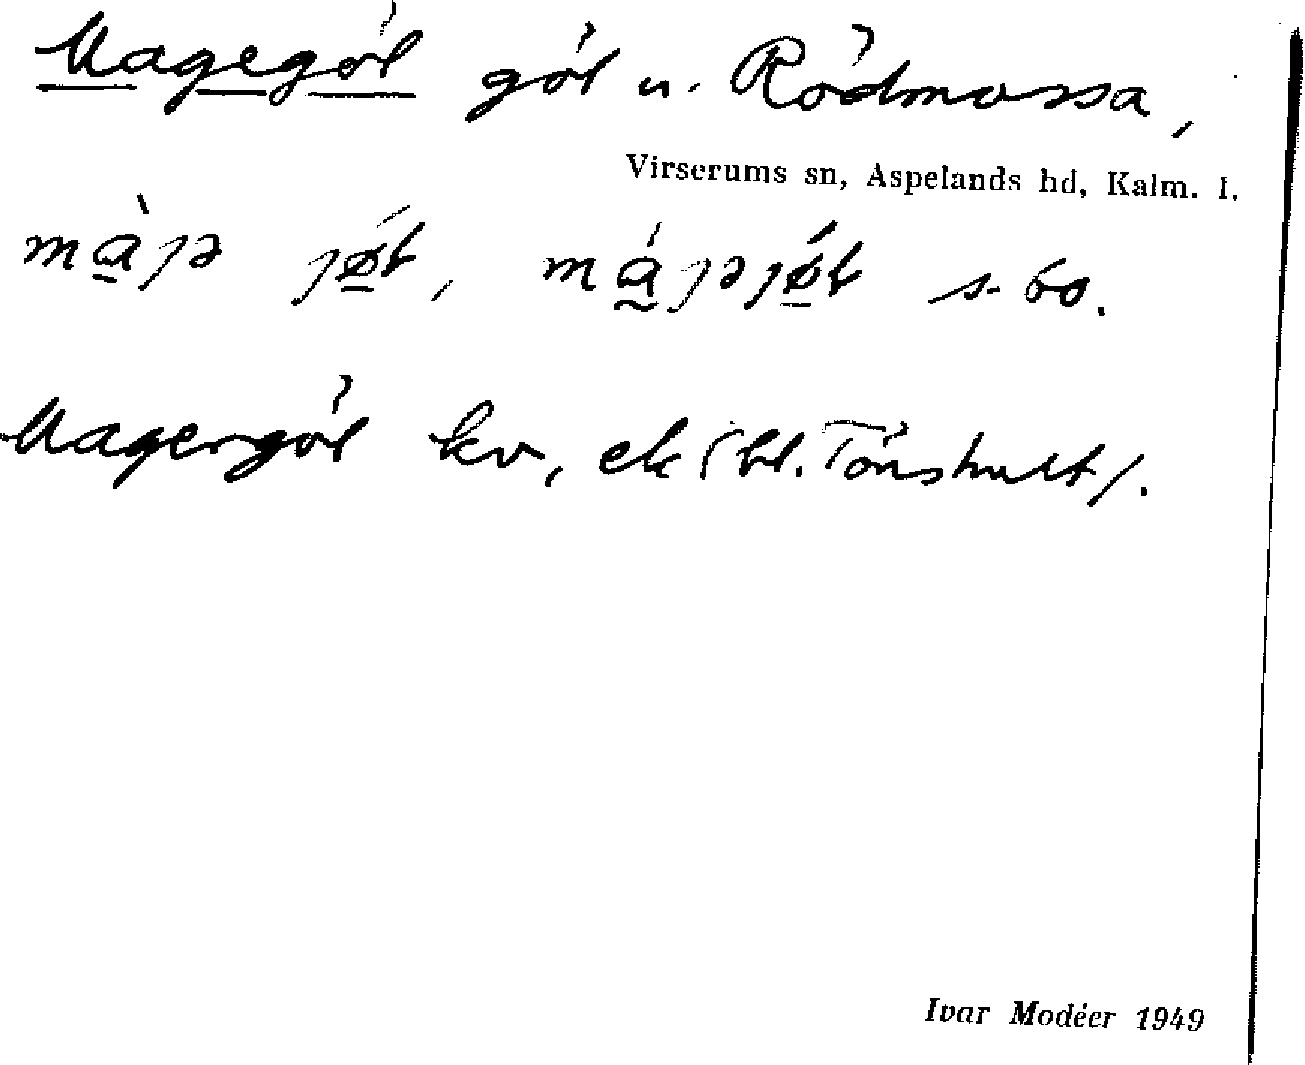 Magegöl göl u. Rödmossa,
Virserums sn, Aspelands hd, Kalm. l.
mà̱jə jǿ̱ɫ, má̰jəjǿ̱ɫ s. bo.
Magergöl kv, ek (bl. Tönshult).
Ivar Modéer 1949